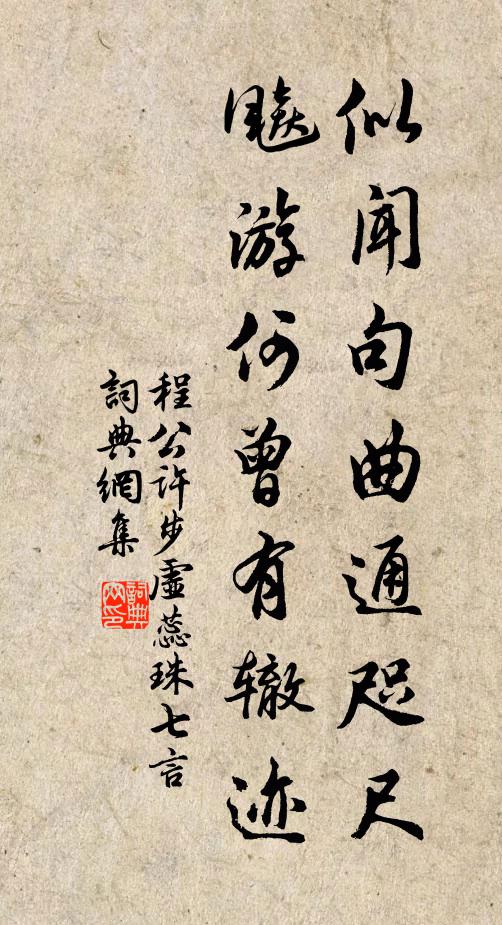 似闻句曲通咫尺
飚游何曾有辙迹
程公许步虚蕊珠七言
詞典網集
詞典網印